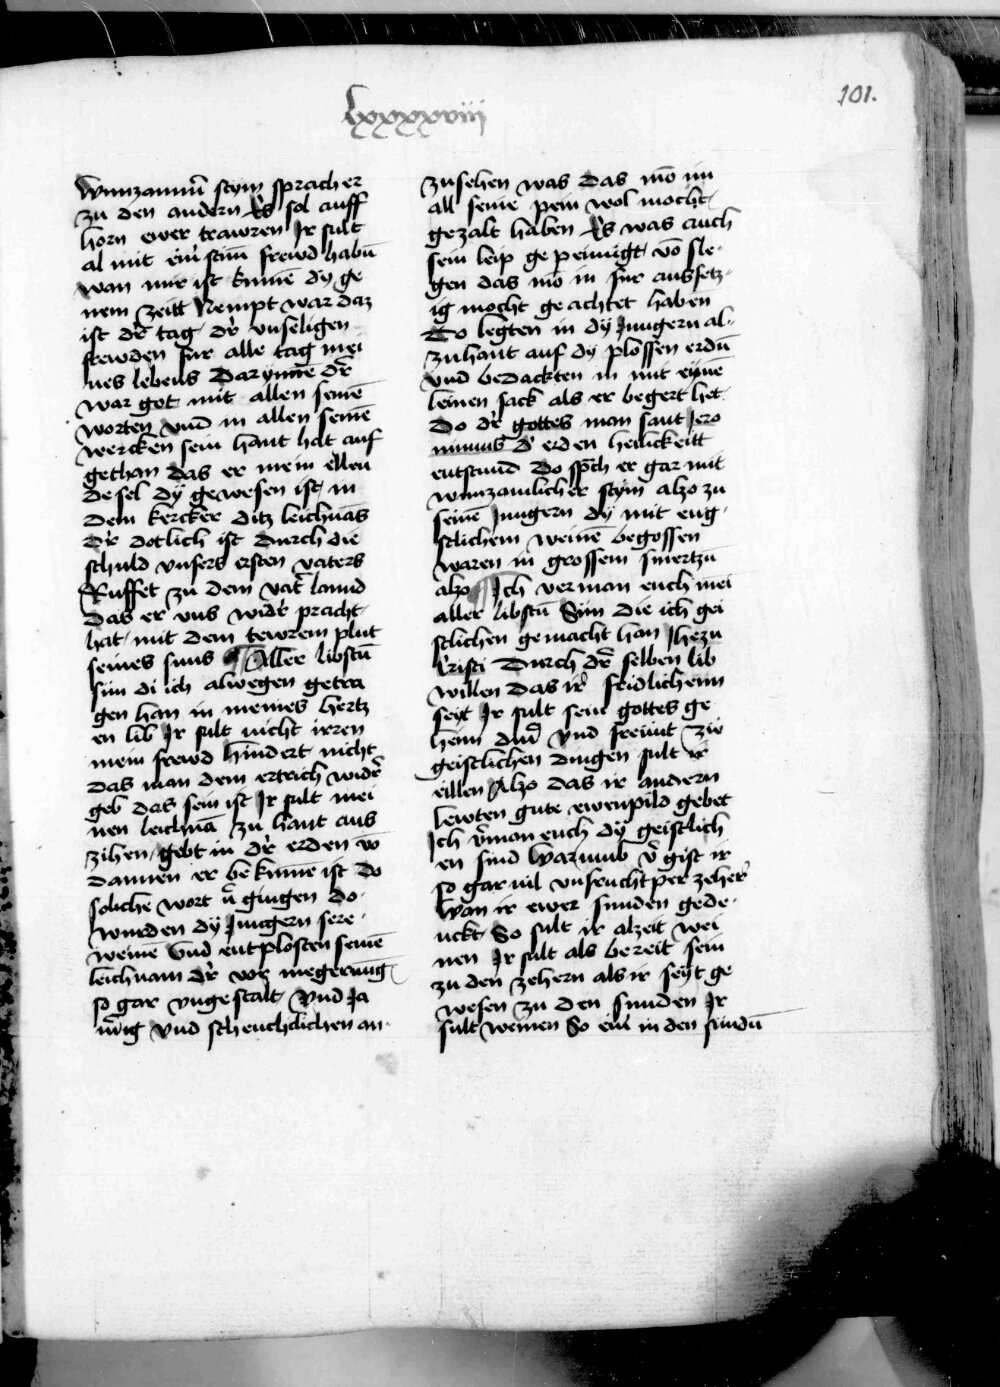 lxxxxviii
101.
wunzamer̃ stym sprach er
zu den andern Es sol auff
horn ewer trawren Ir sult
al mit eim̄ frewd habn̄
wan mir ist kumē dy ge
nem zeitt Nempt war daz
ist dr̄ tag dr̄ vnseligen
frewden fur alle tag mei
nes lebens Darynnē dr̄
war got mit allen seinē
worten vnd in allen seinē
wercken sein hant hat auf
gethan das er mein ellen
de sel dy gewesen ist in
dem kercker ditz leichnās
dr̄ dotlich ist durch die
schuld vnsers ersten vaters
Ruffet zu dem vatr̄ lannd
das er vns widr̄ pracht
hat mit dem tewrem plut
seines suns ¶ Aller libstn̄
sun di ich alwegen getra
gen han in meines hertz
en lib Ir sult nicht irren
mein frewd hindert nicht
das man dem ertrich widr̄
geb das sein ist Ir sult mei
nen leichnā zu hant aus
zihen gebt in dr̄ erden vō
dannen er bekumē ist do
soliche wort v̄gingen do
wurden dy Jungern sere
weinē vnd entplosten seinē
leichnam dr̄ vor megerung
so gar vngestalt vnd Ja
mr̄ig vnd scheuchlichen an
zusehen was das mō im
all seine pein wol mocht
gezalt haben Es was auch
sein leip gepeinigt vō sle
gen das mō in fur aussetz
ig mocht geachtet haben
Do legten in dy Jungern al
zuhant auf dy plossen erdn̄
vnd bedackten in mit eynē
leinen sack als er begert het
Do dr̄ gottes man sant Jero
nimus dr̄ erden heilickeitt
entstund Do sp̄ch er gar mit
wunzamlicher stym alzo zu
seinē Jungern dy mit eng
stlichem weinē begossen
waren in grossem smertzn̄
alzo ¶ Ich verman euch mei
aller libstn̄ Sun die ich gei
stlichen gemacht han Jhezu
Cristi durch dr̄ selben lib
willen das ir̄ fridlichenn
seyt Ir sult sein gottes ge
heim dinr̄ vnd freunt zw
geistlichen dingen sult ir
eillen Alzo das ir andern
lewten gute ewenpild gebet
Ich v̄man euch dy geistlich
en sind warumb v̄gist ir
so gar vil vnfruchtper zeher̄
Wan ir ewer sunden gede
nckt So sult ir alzeit wei
nen Ir sult als bereit sein
zu den zehern als ir seyt ge
wesen zu den sunden Ir
sult weinen So eur̄ in den sundn̄